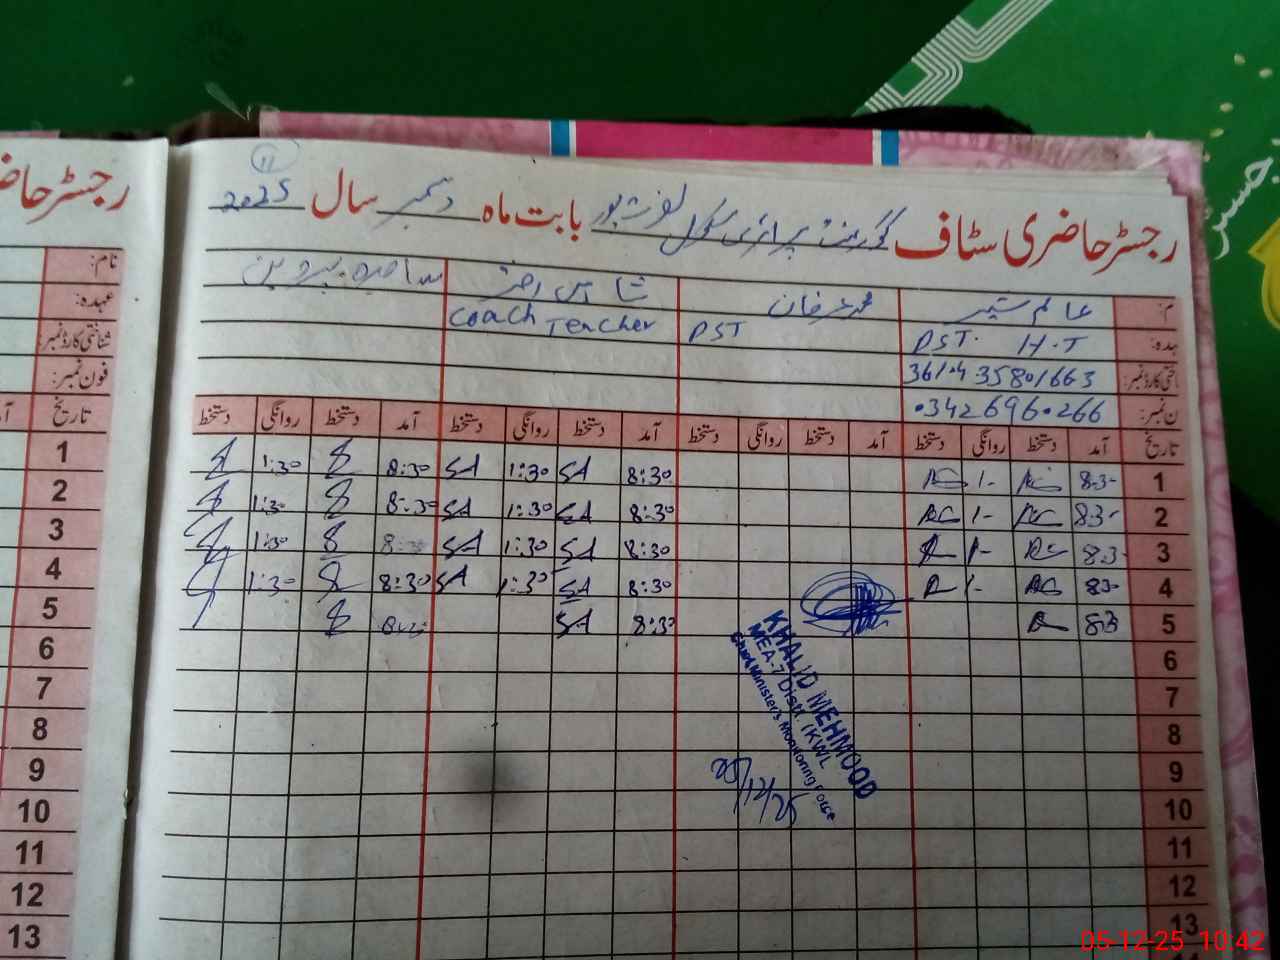 11
رجسٹر حاضری سٹاف گورنمنٹ پرائمری سکول نصرت پور بابت ماہ دسمبر سال 2025
رجسٹر حا
نام: عالم شیر محمد عرفان
عہدہ: PST. H.T PST Coach Teacher
شناختی کارڈ نمبر: 3610435801663
فون نمبر: 03426960266
تاریخ آمد دستخط روانگی دستخط آمد دستخط روانگی دستخط آمد دستخط روانگی دستخط آمد دستخط روانگی دستخط
1 8:30 1- 8:30 SA 1:30 SA 8:30 1:30
2 8:30 1- 8:30 SA 1:30 SA 8:30 1:30
3 8:30 1- 8:30 SA 1:30 SA 8:30 1:30
4 8:30 1- 8:30 SA 1:30 SA 8:30 1:30
5 8:30 8:30 SA
6
7
8
9
10
11
12
13
KHALID MEHMOOD
MEA-7 Distt. (KWL
Chief Minister's Monitoring Force
05/12/25
نام:
عہدہ:
شناختی کارڈ نمبر:
فون نمبر:
تاریخ
1
2
3
4
5
6
7
8
9
10
11
12
13
05-12-25 10:42